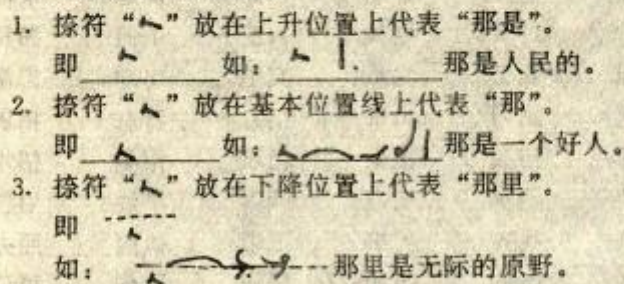 1. 捺符“ ”放在上升位置上代表“那是”。
即 如： 那是人民的。
2. 捺符“ ”放在基本位置线上代表“那”。
即 如： 那是一个好人。
3. 捺符“ ”放在下降位置上代表“那里”。
即
如： 那里是无际的原野。